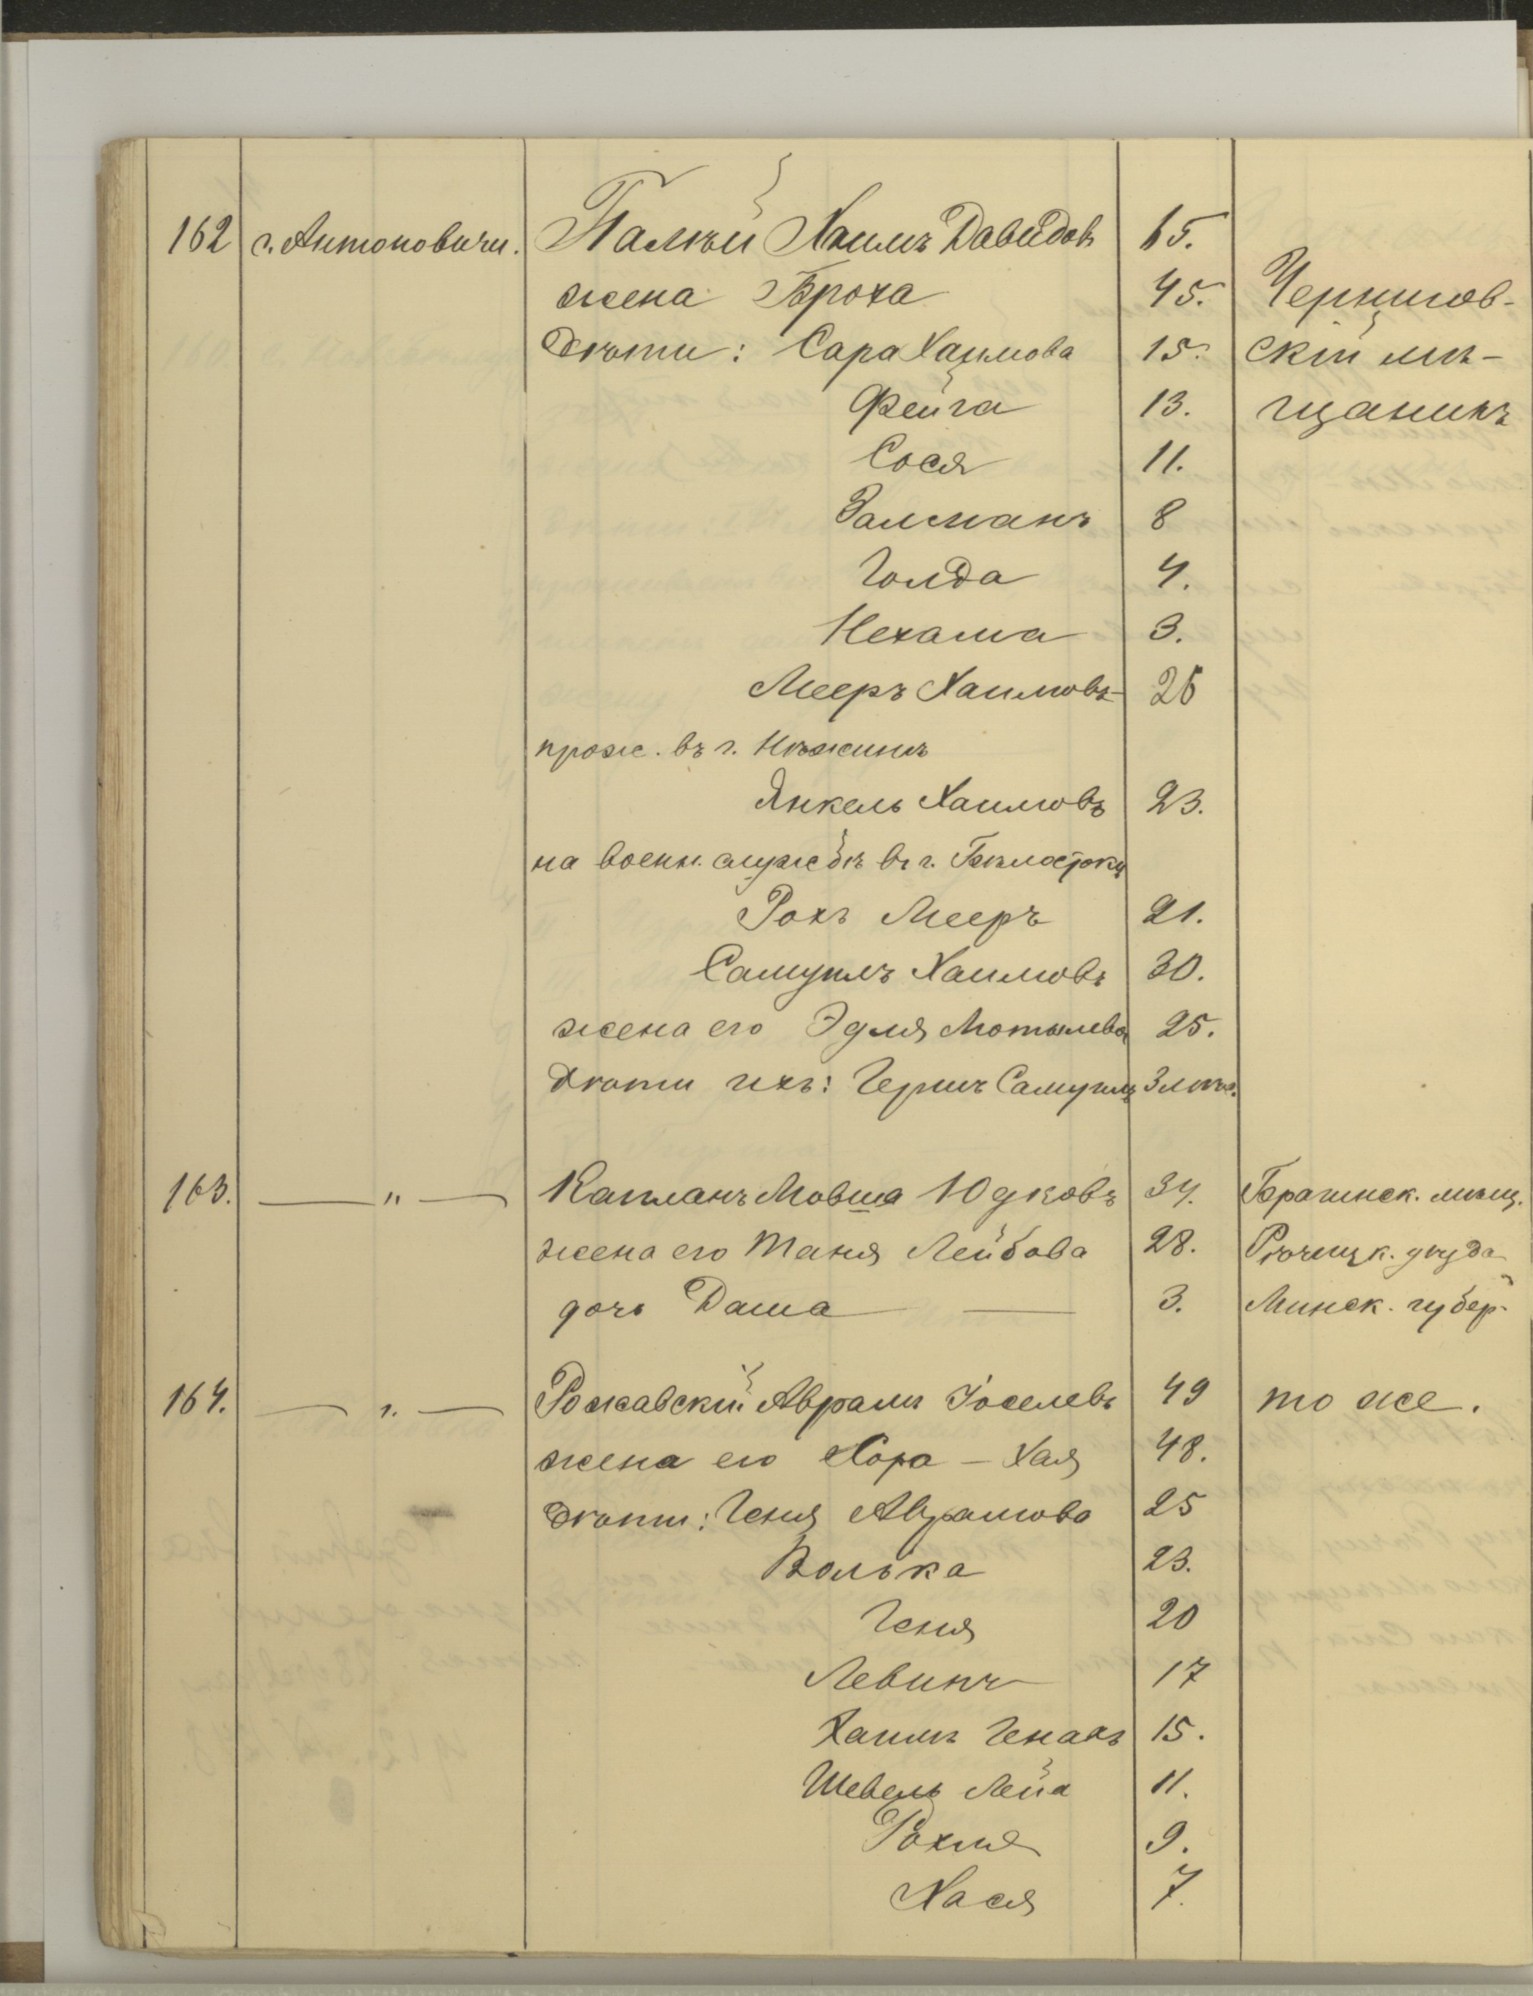 162 с. Антоновичи. Палѣй Хаимъ Давидовъ 65.
жена Броха 45. Чернигов-
Дѣти: Сара Хаимова 15. скій мѣ-
Фейга 13. щанинъ
Сося 11.
Залманъ 8
Голда 4.
Нехама 3.
Мееръ Хаимовъ 26
прож. въ г. Нѣжинѣ
Янкель Хаимовъ 23.
на воен. службѣ въ г. Бѣлостоку
Рохъ Мееръ 21.
Самуилъ Хаимовъ 30.
жена его Эдля Мотылева 25.
Дѣти ихъ: Гершъ Самуилъ 3 лѣтъ.
163. — " — Капланъ Мовша Юдковъ 34. Брагинск. мѣщ.
жена его Таня Лейбова 28. Рѣчицк. уѣзда
дочь Даша — 3. Минск. губер.
164. — " — Рожавскій Аврамъ Іоселевъ 49 то же.
жена его Хора - Хая 48.
Дѣти: Геня Аврамова 25
Волька 23.
Геня 20
Левинъ 17
Хаимъ Генахъ 15.
Шевель Лейа 11.
Рохля 9.
Хася 7.